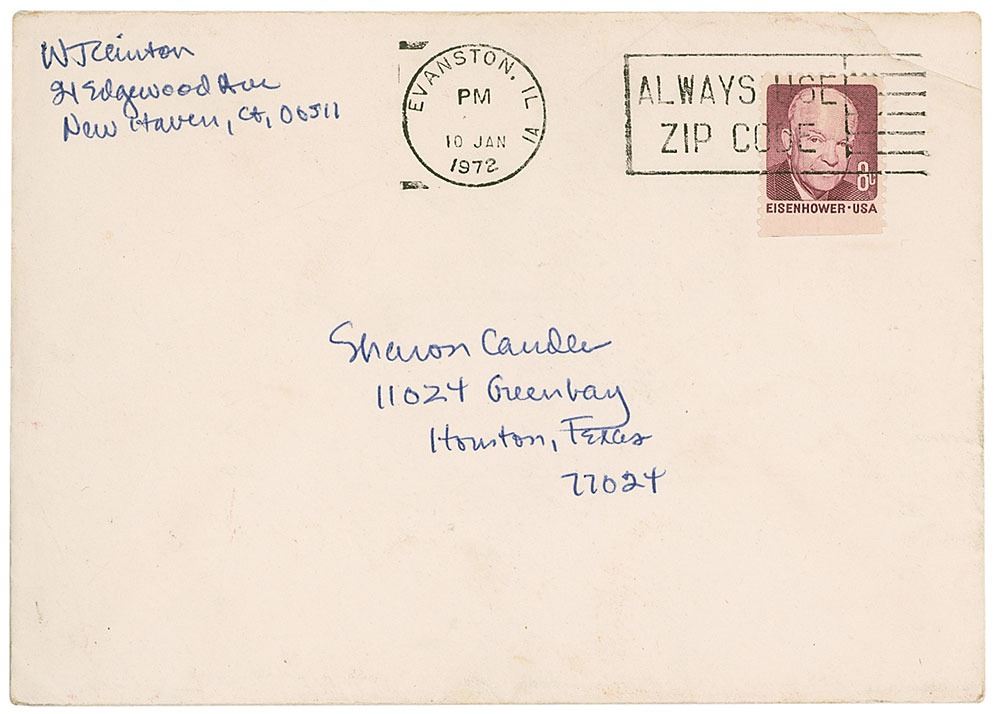 WJClinton
21 Edgewood Ave
New Haven, Ct, 06511
EVANSTON, IL
PM
10 JAN
1972
1A
ALWAYS USE
ZIP CODE
8¢
EISENHOWER·USA
Sharon
11024 Greenbay
Houston, Texas
77024